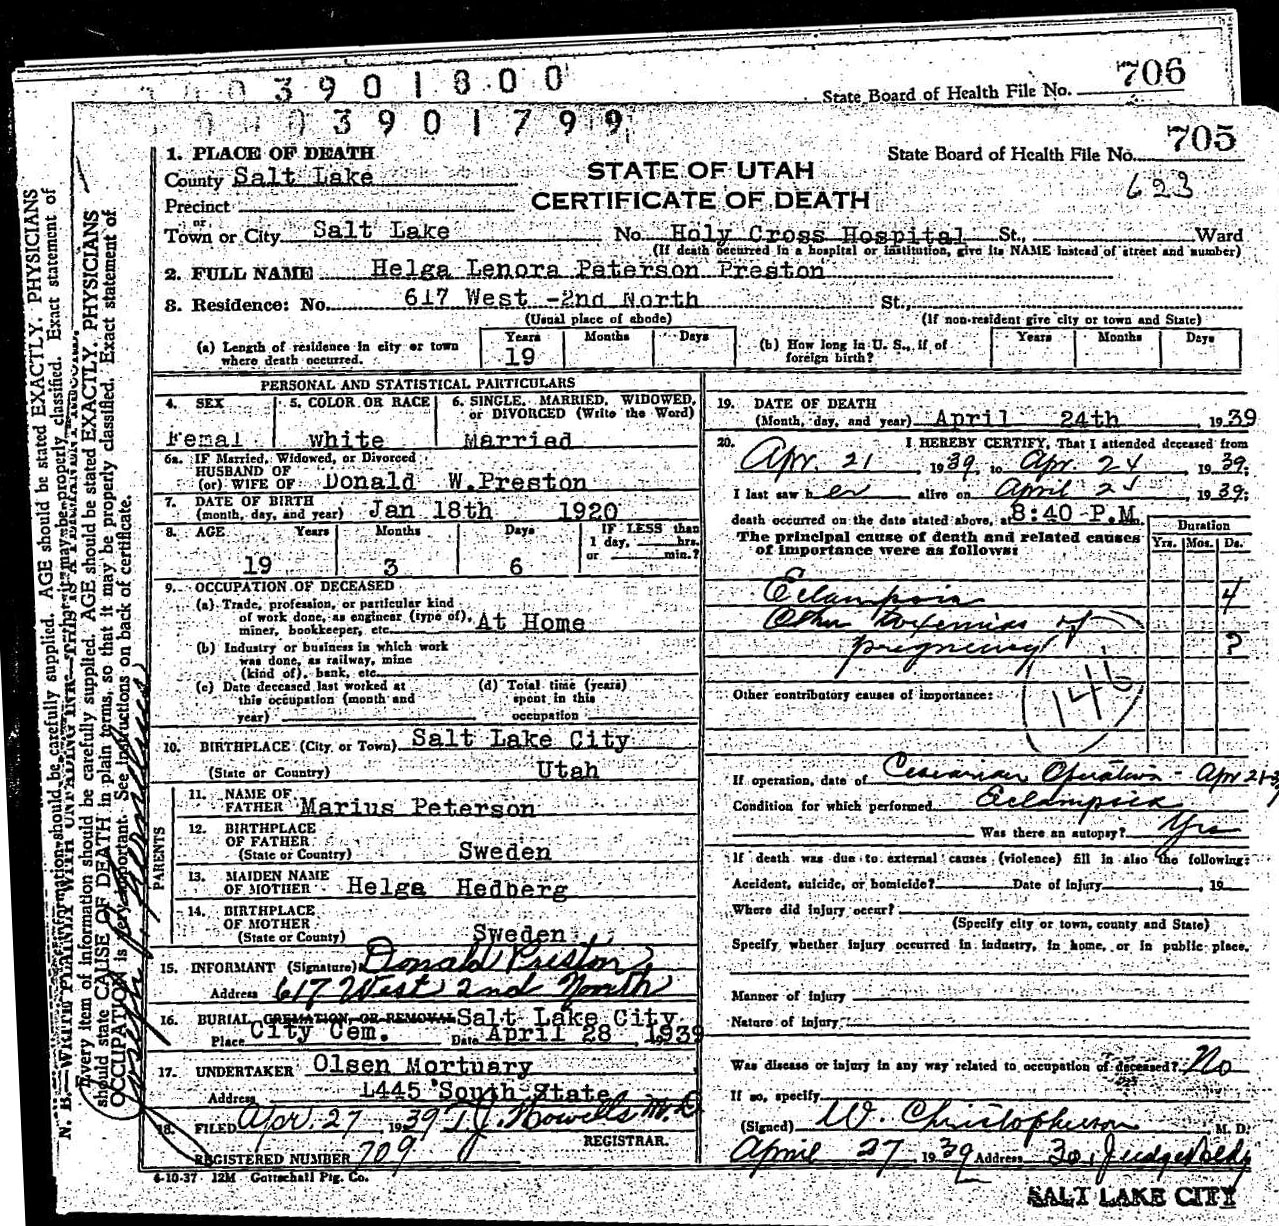 3901800
706
State Board of Health File No.
03901799
705
State Board of Health File No.
623
STATE OF UTAH
CERTIFICATE OF DEATH
1. PLACE OF DEATH
County Salt Lake
Precinct
or
Town or City Salt Lake No. Holy Cross Hospital St., Ward
(If death occurred in a hospital or institution, give its NAME instead of street and number)
2. FULL NAME Helga Lenora Paterson Preston
3. Residence: No. 617 West -2nd North St.,
(Usual place of abode) (If non-resident give city or town and State)
(a) Length of residence in city or town where death occurred. Years 19 Months Days
(b) How long in U. S., if of foreign birth? Years Months Days
PERSONAL AND STATISTICAL PARTICULARS
4. SEX Femal
5. COLOR OR RACE white
6. SINGLE, MARRIED, WIDOWED, or DIVORCED (Write the Word) Married
6a. IF Married, Widowed, or Divorced
HUSBAND OF
(or) WIFE OF Donald W.Preston
7. DATE OF BIRTH
(month, day, and year) Jan 18th 1920
8. AGE Years 19 Months 3 Days 6 IF LESS than 1 day, hrs. or min.?
9. OCCUPATION OF DECEASED
(a) Trade, profession, or particular kind
of work done, as engineer (type of),
miner, bookkeeper, etc. At Home
(b) Industry or business in which work
was done, as railway, mine
(kind of), bank, etc.
(c) Date deceased last worked at
this occupation (month and
year)
(d) Total time (years)
spent in this
occupation
10. BIRTHPLACE (City or Town) Salt Lake City
(State or Country) Utah
PARENTS
11. NAME OF
FATHER Marius Peterson
12. BIRTHPLACE
OF FATHER
(State or Country) Sweden
13. MAIDEN NAME
OF MOTHER Helga Hedberg
14. BIRTHPLACE
OF MOTHER
(State or Country) Sweden
15. INFORMANT (Signature) Donald Preston
Address 617 West 2nd North
16. BURIAL, CREMATION, OR REMOVAL Salt Lake City
Place City Cem. Date April 28, 1939
17. UNDERTAKER Olsen Mortuary
Address 1445 South State
18. FILED Apr. 27 1939 T. J. Howells M.D.
REGISTRAR.
REGISTERED NUMBER 709
4-10-37 12M Gottschall Ptg. Co.
19. DATE OF DEATH
(Month, day, and year) April 24th, 1939
20. I HEREBY CERTIFY, That I attended deceased from
Apr. 21, 1939, to Apr. 24, 1939;
I last saw her alive on April 24, 1939;
death occurred on the date stated above, at 8:40 P.M. m.
The principal cause of death and related causes
of importance were as follows:
Duration
Yrs. Mos. Ds.
Eclampsia 4
Other toxemias of
pregnancy ?
146
Other contributory causes of importance:
If operation, date of Cesarean Operation - Apr 21-39
Condition for which performed Eclampsia
Was there an autopsy? Yes
If death was due to external causes (violence) fill in also the following:
Accident, suicide, or homicide? Date of injury, 19
Where did injury occur?
(Specify city or town, county and State)
Specify whether injury occurred in industry, in home, or in public place.
Manner of injury
Nature of injury
Was disease or injury in any way related to occupation of deceased? No
If so, specify
(Signed) W. Christopherson M. D.
April 27, 1939 Address Judge Bldg
SALT LAKE CITY
AGE should be stated EXACTLY. PHYSICIANS
N. B.—WRITE PLAINLY WITH UNFADING INK—THIS IS A PERMANENT RECORD.
Every item of information should be carefully supplied. AGE should be stated EXACTLY. PHYSICIANS
should state CAUSE OF DEATH in plain terms, so that it may be properly classified. Exact statement of
OCCUPATION is very important. See instructions on back of certificate.